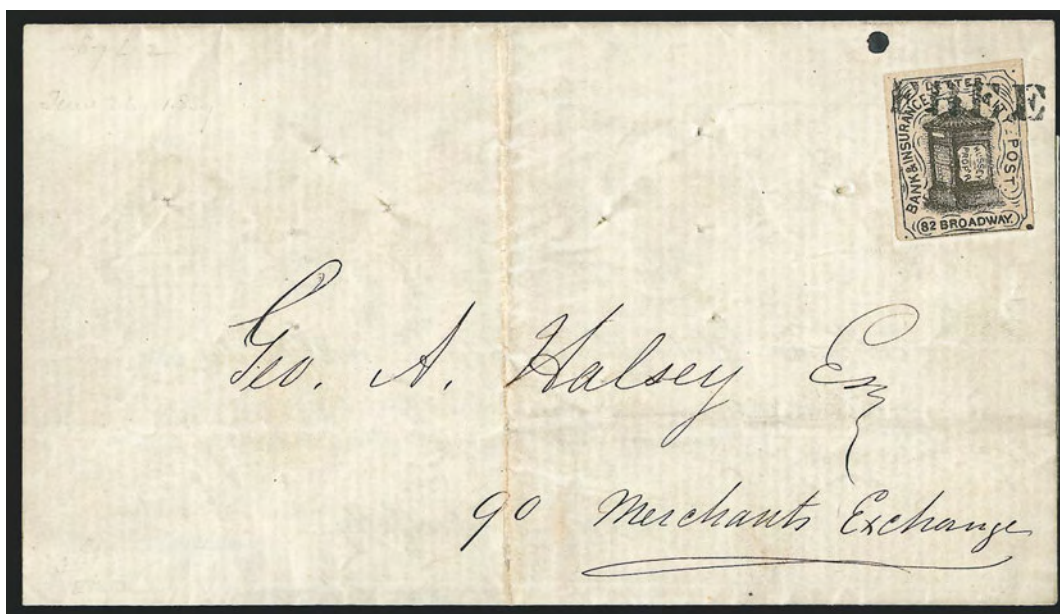 BANK & INSURANCE
LETTER
POST.
82 BROADWAY.
Geo. A. Halsey Esq
90 Merchants Exchange